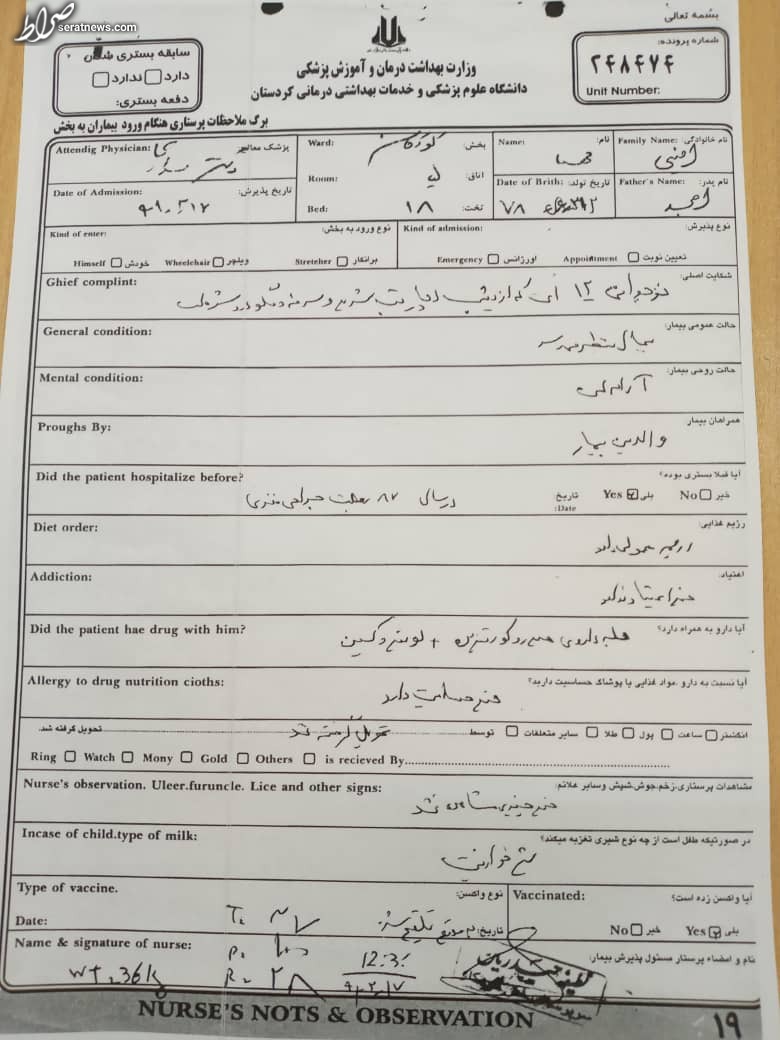 صراط
seratnews.com
بسمه تعالی
سابقه بستری شدن
دارد ندارد
دفعه بستری:
وزارت بهداشت درمان و آموزش پزشکی
دانشگاه علوم پزشکی و خدمات بهداشتی درمانی کردستان
شماره پرونده:
۲۴۸۴۷۴
Unit Number:
برگ ملاحظات پرستاری هنگام ورود بیماران به بخش
Attendig Physician: پزشک معالج:
Ward: بخش: کودکان
Name: نام: مهسا
Family Name: نام خانوادگی: امینی
Room: اتاق:
Date of Admission: تاریخ پذیرش:
Bed: تخت: ۱۸
Date of Brith: تاریخ تولد: ۷۸
Father's Name: نام پدر: امجد
Kind of enter: نوع ورود به بخش:
Himself خودش Wheelchair ویلچر Stretcher برانکار
Kind of admission: نوع پذیرش:
Emergency اورژانس Appointment تعیین نوبت
Ghief complint: شکایت اصلی:
نوجوانی ۱۲ ای که از دیشب دچار تب
General condition: حالت عمومی بیمار:
Mental condition: حالت روحی بیمار:
آرام است
Proughs By: همراهان بیمار
والدین بیمار
Did the patient hospitalize before? آیا قبلا بستری بوده؟
No خیر Yes بلی تاریخ Date: در سال ۸۷ بعلت جراحی مغزی
Diet order: رژیم غذایی:
رژیم معمولی دارد
Addiction: اعتیاد:
Did the patient hae drug with him? آیا دارو به همراه دارد؟
بله داروی هیدروکورتیزون + لووتیروکسین
Allergy to drug nutrition cioths: آیا نسبت به دارو ،مواد غذایی یا پوشاک حساسیت دارید؟
انگشتر ساعت پول طلا سایر متعلقات توسط تحویل گرفته شد.
Ring Watch Mony Gold Others is recieved By
Nurse's observation. Uleer.furuncle. Lice and other signs: مشاهدات پرستاری،زخم،جوش،شپش وسایر علائم:
Incase of child.type of milk: در صورتیکه طفل است از چه نوع شیری تغزیه میکند؟
Type of vaccine. نوع واکسن:
Vaccinated: آیا واکسن زده است؟
Date: تاریخ:
No خیر Yes بلی
Name & signature of nurse: نام و امضاء پرستار مسئول پذیرش بیمار:
12:30
R: ۲۸
wt: 36k
NURSE'S NOTS & OBSERVATION
۱۹